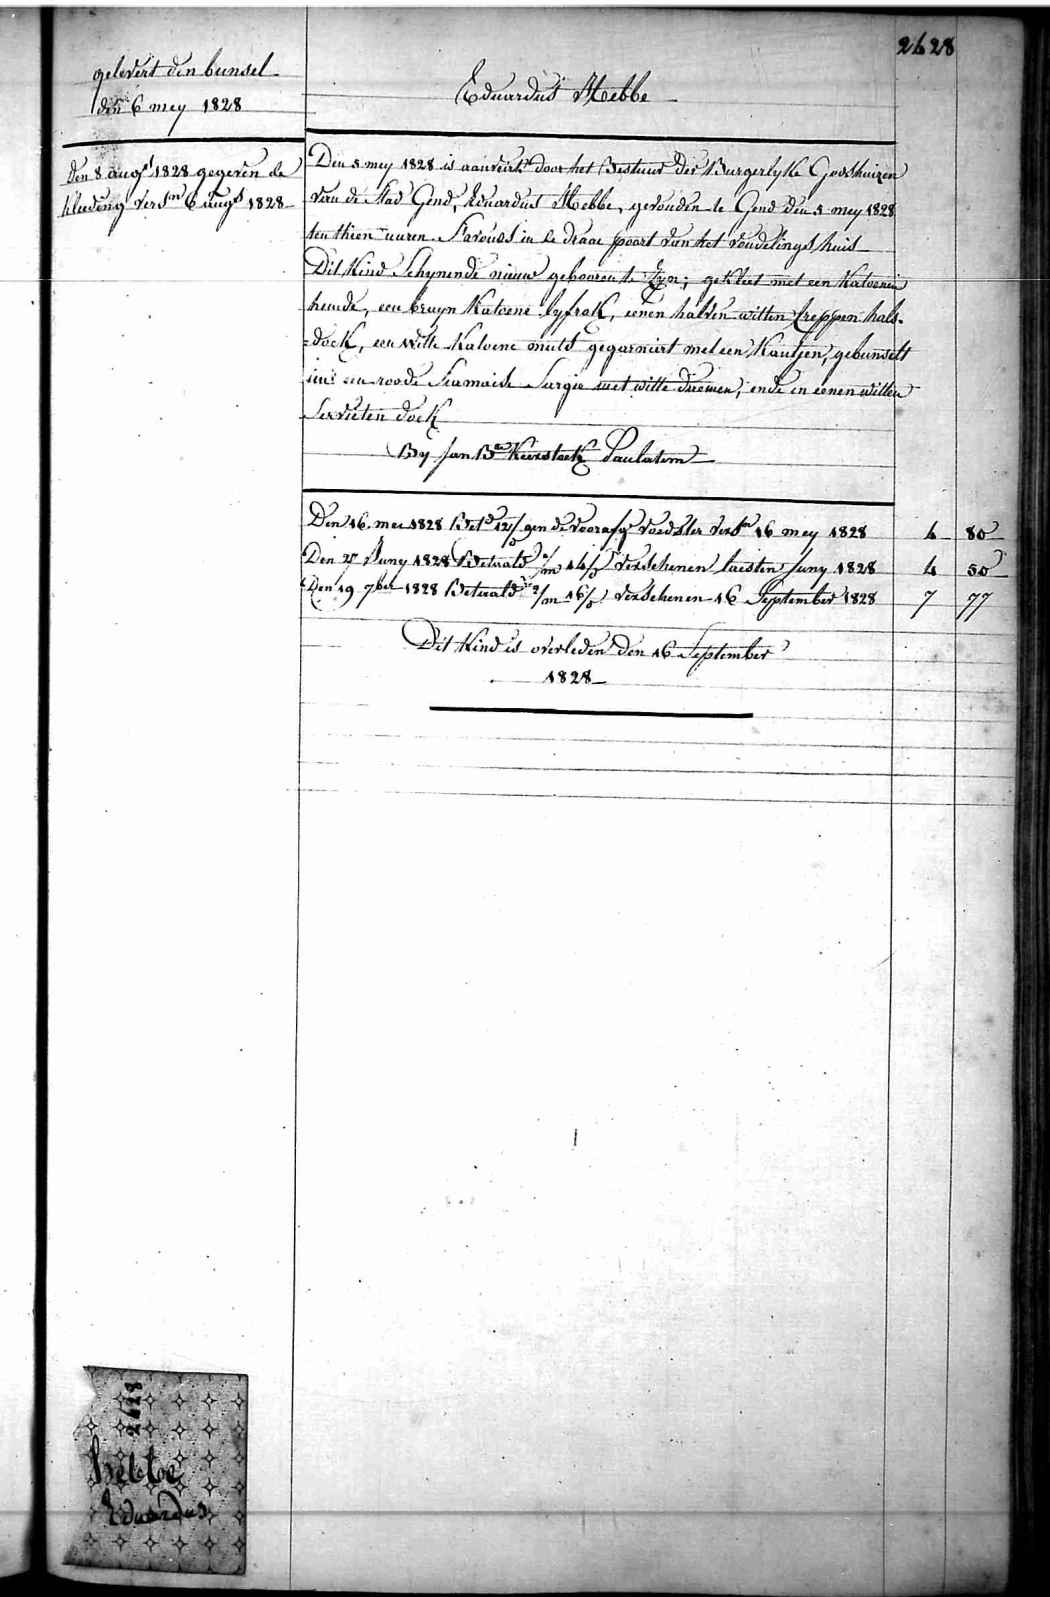 2628
gelevert den bunsel
den 6 mey 1828
Eduardus Hebbe
den 8 augst 1828 gegeven de
kleeding versn 6 augst 1828
Den 5 mey 1828 is aanveirt door het Bestuur der Burgerlyke Godshuizen
van de stad Gend, Eduardus Hebbe, gevonden te Gend den 5 mey 1828
ten thien uuren S'avonds in de draae poort van het vondelings huis
Dit Kind Schynende nieuw gebooren te Zyn; gekleet met een Katoenen
hemde, een bruyn Katoene lyfrok, eenen halven witten kreppen hals-
=doek, een witte Katoene muts gegarniert met een Kantjen, gebunselt
in een roode Siamoise Sargie met witte , ende in eenen witten
Servieten doek
By Jan Bte Paulatim
Den 16 mei 1828 Betd 12/ aen de voorafge voedster versn 16 mey 1828 4 80
Den 27 Juny 1828 Betaald 2/m 14/ verschenen laesten Juny 1828 4 50
Den 19 7ber 1828 Betaald 2/m 16/ verschenen 16 September 1828 7 77
Dit Kind is overleden den 16 September
1828
2628
Hebbe
Eduardus